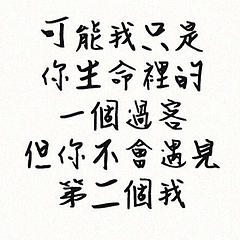 可能我只是
你生命裡的
一個過客
但你不會遇見
第二個我